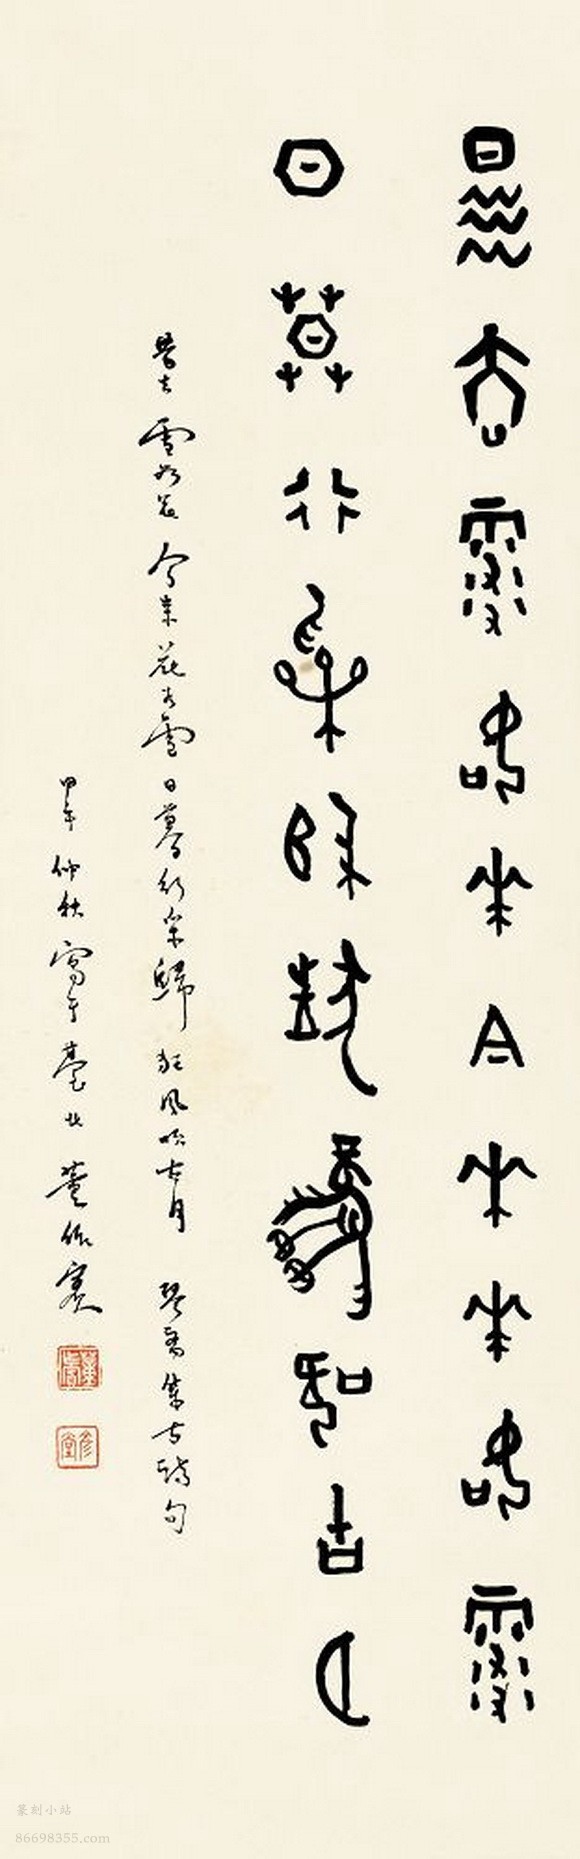 昔去雪如花今來花如雪
日莫行采歸狂風吹古月
昔去雪如花今來花如雪日暮行采歸狂風吹古月 琴齋集古詩句
甲午仲秋寫于臺北董作賓
董賓
彥堂
篆刻小站
86698355.com